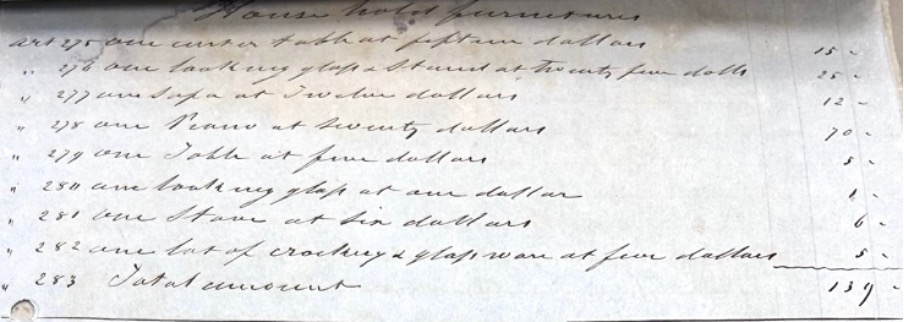 House hold furnitures
Art 275 one center table at fifteen dollars 15 -
" 276 one looking glass & Stand at twenty five dolls 25 -
" 277 one Sofa at Twelve dollars 12 -
" 278 one Piano at seventy dollars 70 -
" 279 one Table at five dollars 5 -
" 280 one looking glass at one dollar 1 -
" 281 one Stove at six dollars 6 -
" 282 one lot of crockery & glass ware at five dollars 5 -
" 283 Total amount 139 -